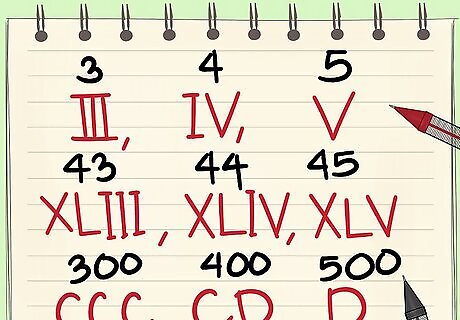 3 4 5
III, IV, V
43 44 45
XLIII, XLIV, XLV
300 400 500
CCC, CD, D